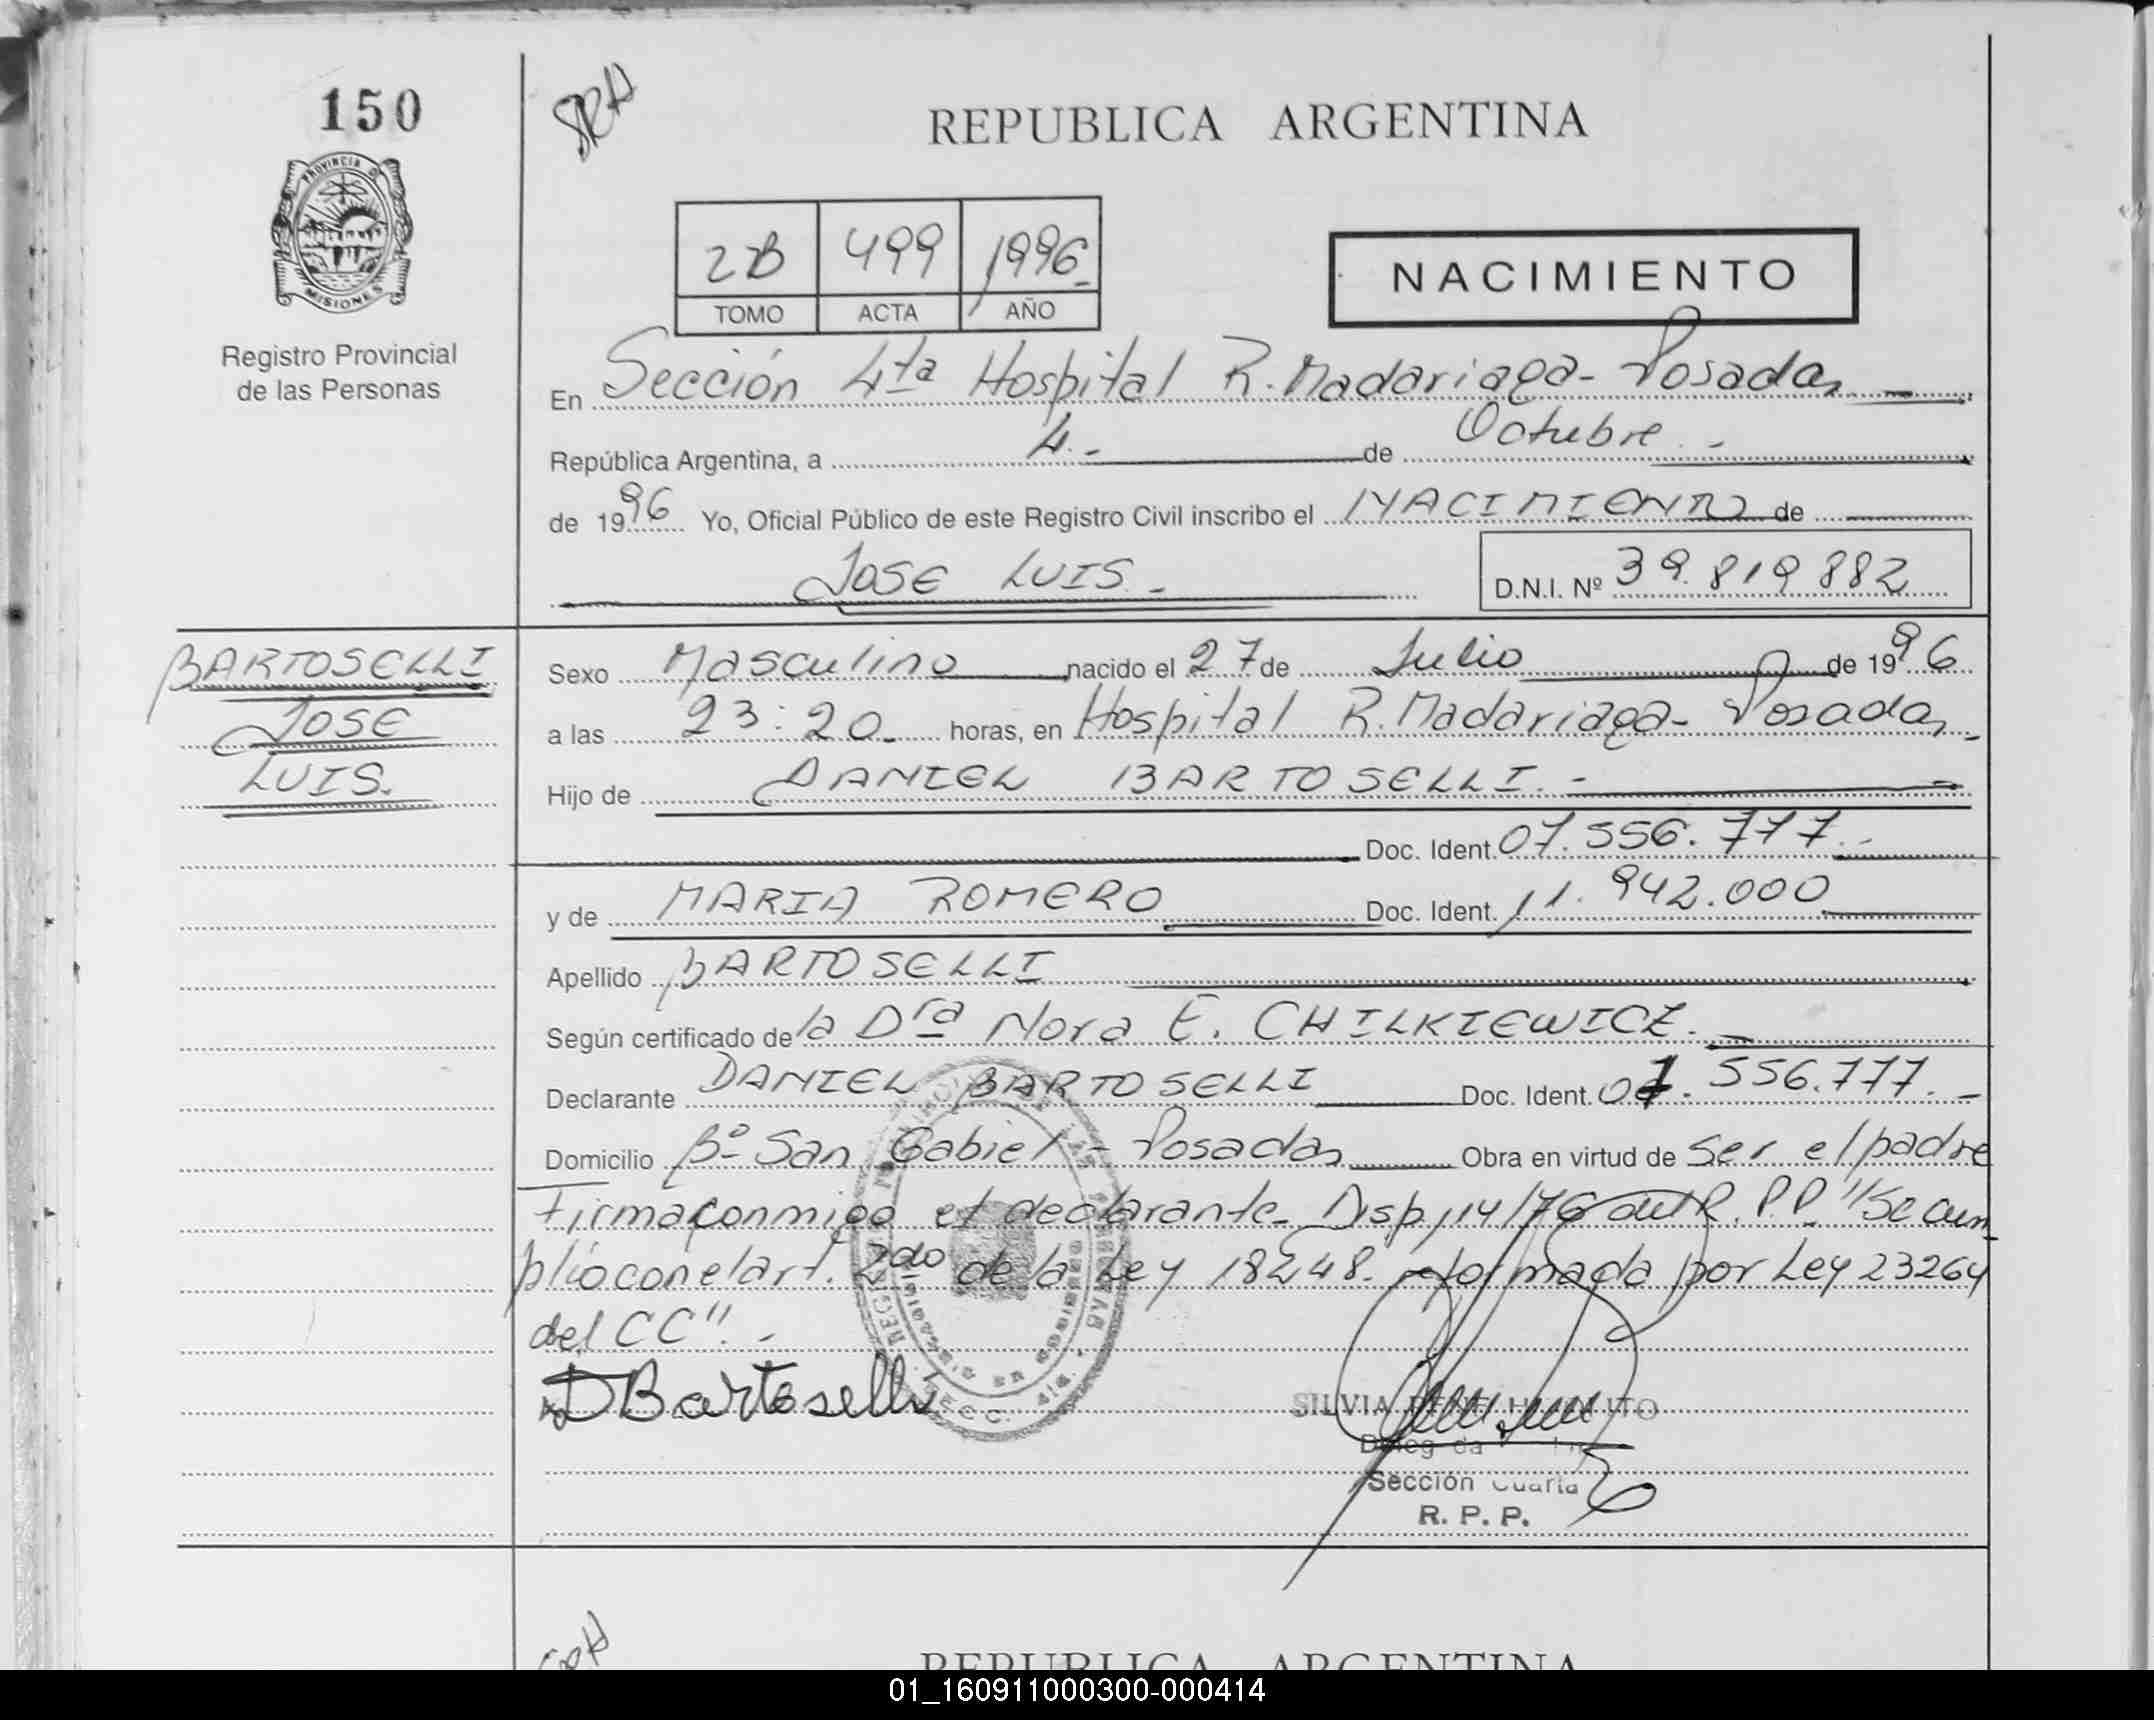 150
REPUBLICA ARGENTINA
PROVINCIA D
MISIONES
Registro Provincial
de las Personas
2B 499 1996
TOMO ACTA AÑO
NACIMIENTO
En Sección 4ta Hospital R. Madariaga - Posadas
República Argentina, a 4.- de Octubre.-
de 1996 Yo, Oficial Público de este Registro Civil inscribo el NACIMIENTO de
JOSE LUIS.-
D.N.I. Nº 39.819.882
BARTOSELLI
JOSE
LUIS.
Sexo Masculino nacido el 27 de Julio de 1996
a las 23:20.- horas, en Hospital R. Madariaga - Posadas.-
Hijo de DANIEL BARTOSELLI.-
Doc. Ident. 07.556.777.-
y de MARIA ROMERO Doc. Ident. 11.942.000
Apellido BARTOSELLI
Según certificado de la Dra Nora E. CHILKIEWICZ.-
Declarante DANIEL BARTOSELLI Doc. Ident. 07.556.777.-
Domicilio Bº San Gabiel - Posadas Obra en virtud de ser el padre
Firma conmigo el declarante. Disp. 14/76 del R.P.P. "Se cum
plio con el art. 2do de la Ley 18248. reformada por Ley 23264
del CC".-
DBartoselli
SILVIA
Sección Cuarta
R. P. P.
REPUBLICA ARGENTINA
01_160911000300-000414